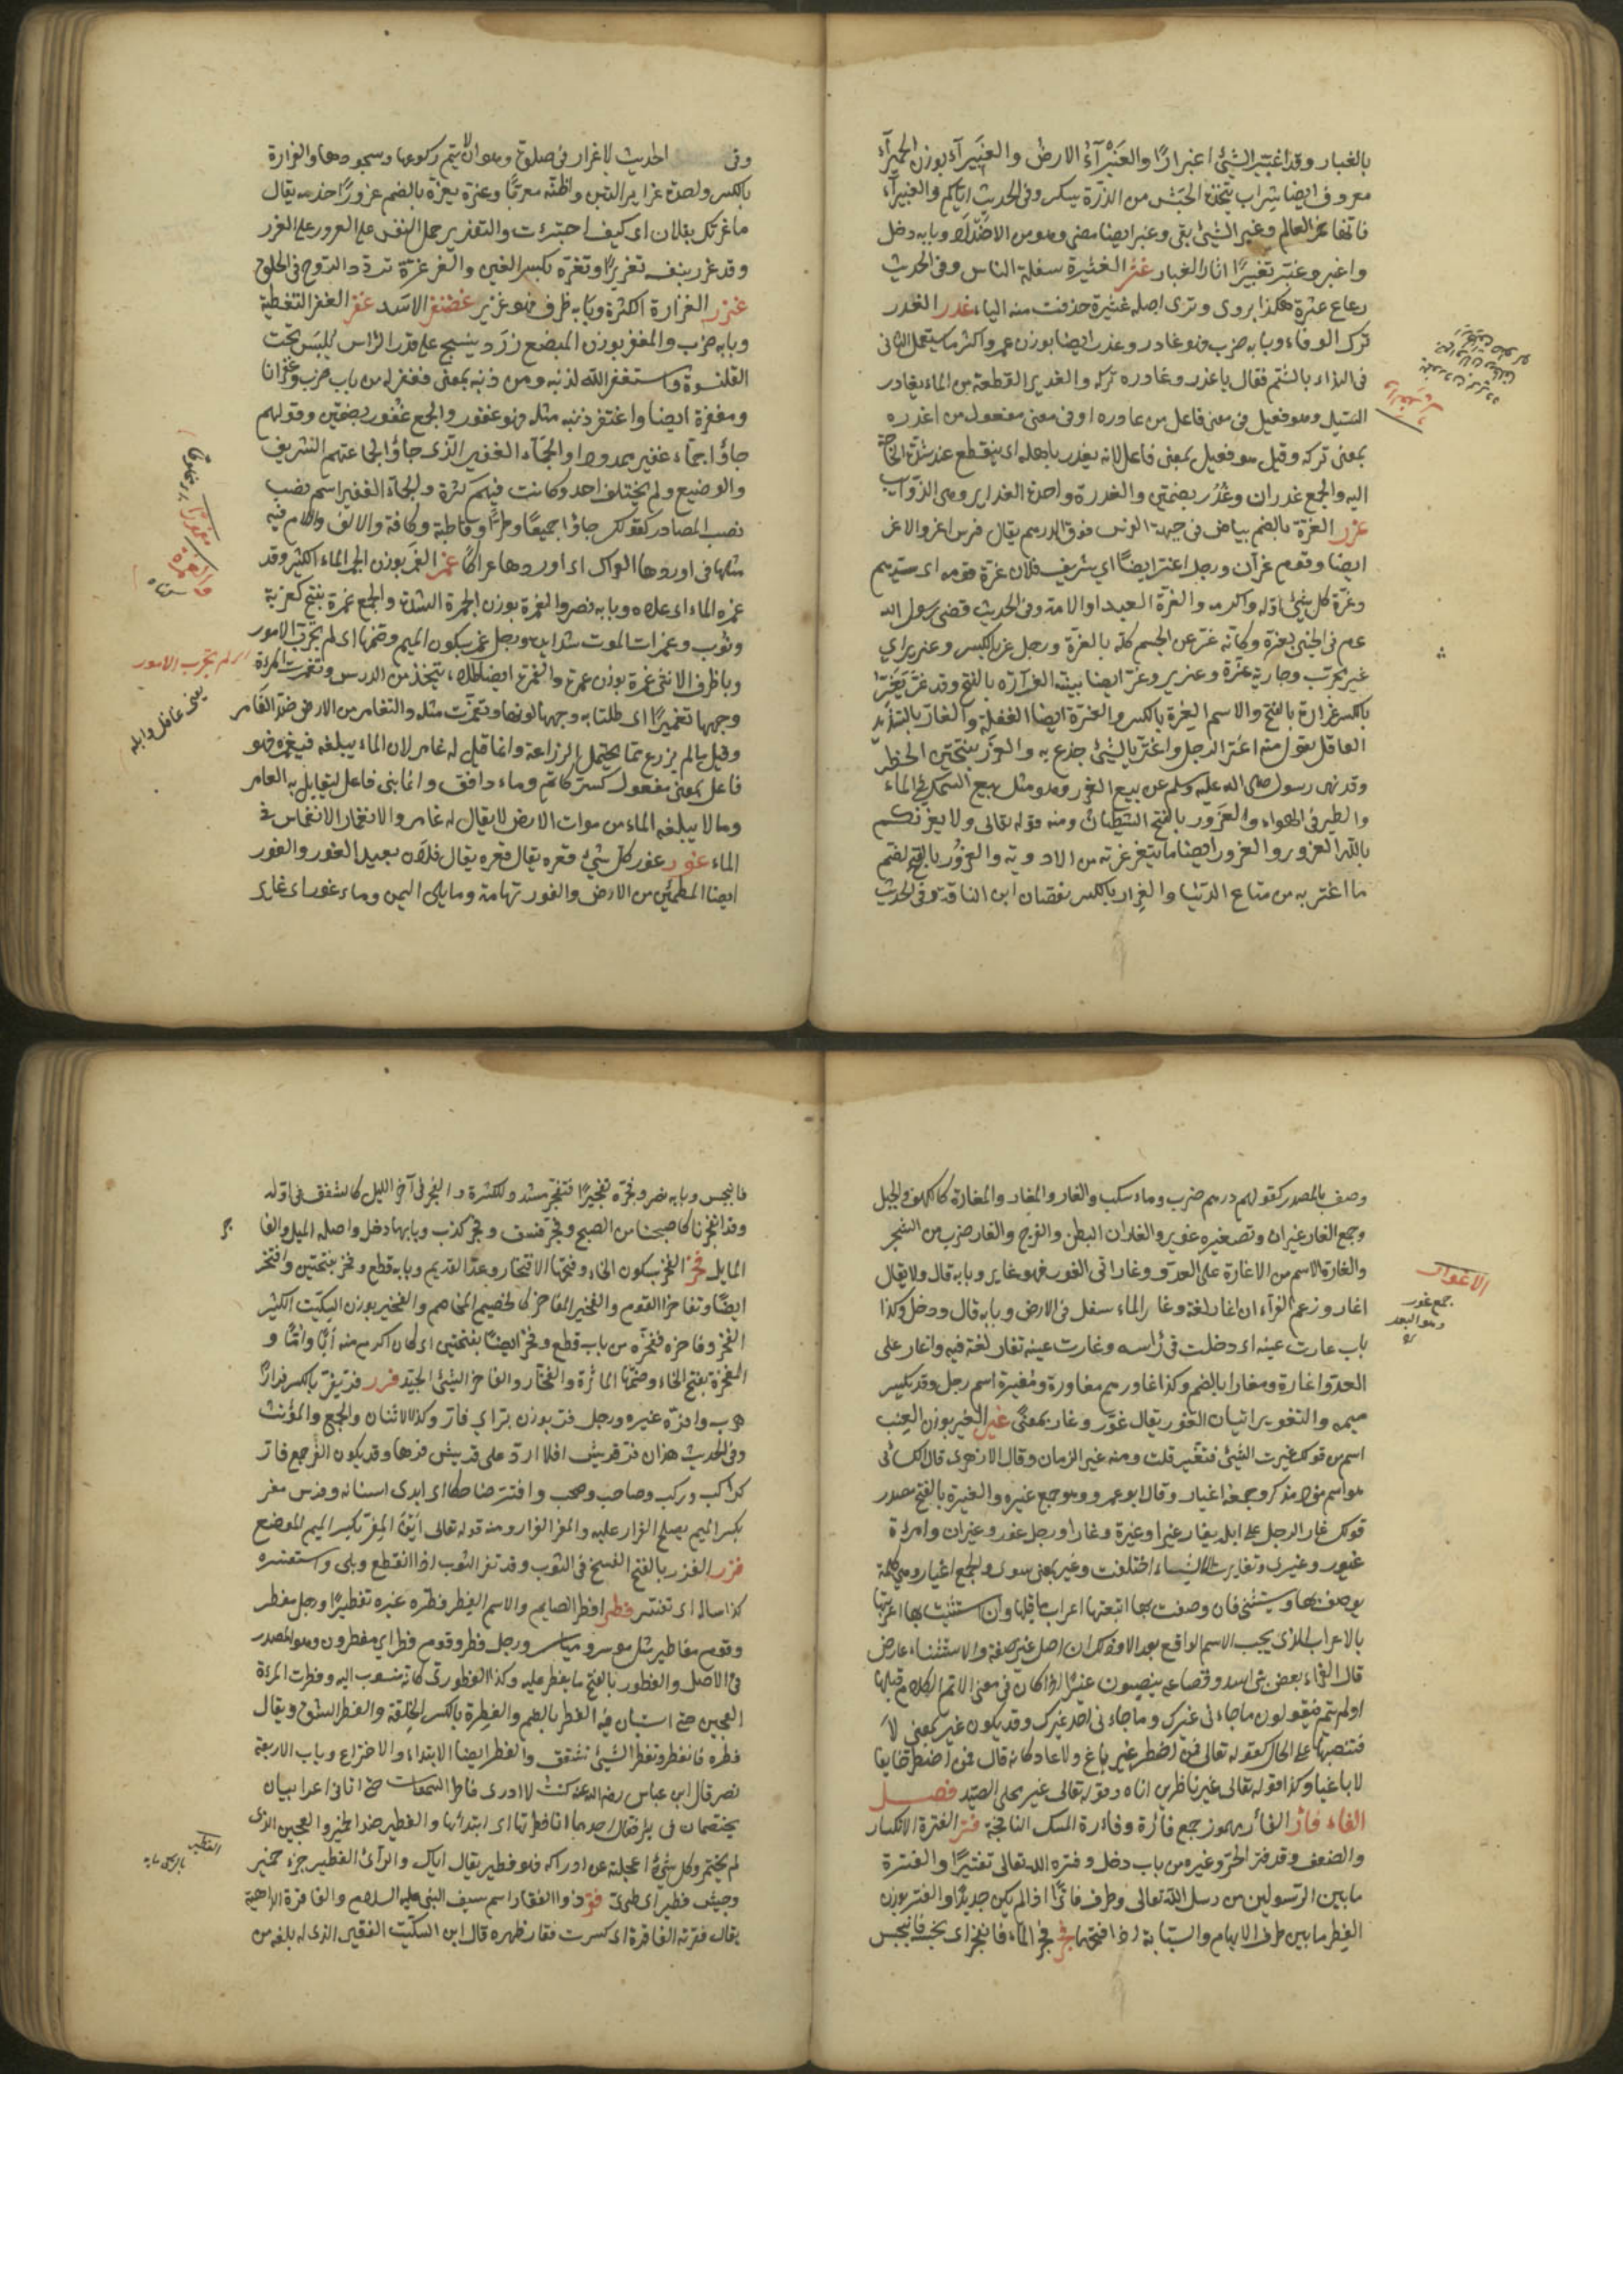 بالغبار وقد اغبر الشئ اغبرارًا والغبرآء الارض والغبيرآء بوزن الحميرآء
معروف ايضا شراب يتخذه الحبش من الذرة يسكر وفى الحديث اياكم والغبيرآء
فانها خمر العالم وغبر الشئ بقى وغبر ايضا مضى وهو من الاضداد وبابه دخل
واغبر وغبر تغبيرًا اثار الغبار غثر الغثيرة سفلة الناس وفى الحديث
رعاع غثرة هكذا يروى ونرى اصله غثيرة حذفت منه الياء غدر الغدر
ترك الوفاء وبابه ضرب فهو غادر وغدر ايضا بوزن عمر واكثر ما يستعمل الثانى
فى النداء بالشتم فقال يا غدر وغادره تركه والغدير القطعة من الماء يغادر
السيل وهو فعيل فى معنى فاعل من غادره او فى معنى مفعول من اغدره
بمعنى تركه وقيل هو فعيل بمعنى فاعل لانه يغدر باهله اى ينقطع عند شدة الحاجة
اليه والجمع غدران وغدر بضمتين والغدرة واحدة الغداير وهى الذوآيب
غرر الغرة بالضم بياض فى جبهة الفرس فوق الدرهم يقال فرس اغر والاغر
ايضا وقوم غرآن ورجل اغر ايضًا اى شريف فلان غرة قومه اى سيدهم
وغرة كل شئ اوله واكرمه والغرة العبد او الامة وفى الحديث قضى رسول الله
عم فى الجنين بغرة وكانه عبر عن الجسم كله بالغرة ورجل غر بالكسر وغرير اى
غير مجرب وجارية غرة وغريرة وغر ايضا بينة الغرارة بالفتح وقد غر يغر
بالكسر غرارة بالفتح والاسم الغرة بالكسر والغرة ايضا الغفلة والغار بالتشديد
الغافل تقول منه اغتر الرجل واغتر بالشئ خدع به والغرر بفتحتين الخطر
وقد نهى رسول صلى الله عليه وسلم عن بيع الغرر وهو مثل بيع السمك فى الماء
والطير فى الهواء والغرور بالفتح الشيطان ومنه قوله تعالى ولا يغرنكم
بالله الغرور والغرور ايضا ما يتغرغر به من الادوية والغرور بالضم
ما اغتر به من متاع الدنيا والغرار بالكسر نقصان لبن الناقة وفى الحديث
وفى الحديث لا غرار فى صلوة وهو ان لا يتم ركوعها وسجودها والغرارة
بالكسر واحدة غراير التبن واظنه معربًا وغره يغره بالضم غرورًا خدعه يقال
ما غرك بفلان اى كيف اجترئت والتغرير حمل النفس على الغرور على الغرر
وقد غرر بنفسه تغريرًا وتغرة بكسر الغين والغرغرة تردد الروح فى الحلق
غزر الغزارة الكثرة وبابه ظرف فهو غزير غضنفر الاسد غفر الغفر التغطية
وبابه ضرب والمغفر بوزن المبضع زرد ينسج على قدر الراس يلبس تحت
القلنسوة واستغفر الله لذنبه ومن ذنبه بمعنى فغفر له من باب ضرب وغفرانا
ومغفرة ايضا واغتفر ذنبه مثله فهو غفور والجمع غفر بضمتين وقولهم
جاؤا جمآء غفير ممدودا والجمآء الغفير الذى جاؤا بجماعتهم الشريف
والوضيع ولم يختلف احد وكانت فيهم كثرة والجمآء الغفير اسم نصب
نصب المصادر كقولك جاؤا جميعًا وطرًا وقاطبة وكافة والالف واللام فيه
مثلها فى اوردها العراك اى اوردها عراكا غمر الغمر بوزن الجمر الماء الكثير وقد
غمره الماء اى علاه وبابه نصر والغمرة بوزن الجمرة الشدة والجمع غمر بفتح كنوبة
ونوب وغمرات الموت شدايده ورجل غمر بسكون الميم وضمها اى لم يجرب الامور
وبابه ظرف الانثى غمرة بوزن عمرة والغمرة ايضا طلاء يتخذ من الورس وتغمرت المرءة
وجهها تغميرًا اى طلت به وجهها لونها وتغمرت مثله والغامر من الارض ضد العامر
وقيل ما لم يزرع مما يحتمل الزراعة وانما قيل له غامر لان الماء يبلغه فيغمره فهو
فاعل بمعنى مفعول كسر كاتم وماء دافق وانما بنى فاعل ليقابل به العامر
وما لا يبلغه الماء من موات الارض لا يقال له غامر والانغمار الانغماس فى
الماء غور غور كل شئ قعره يقال قعره يقال فلان بعيد الغور والغور
ايضا المطمئن من الارض والغور تهامة وما يلى اليمن وماء غور اى غاير
لم يجرب الامور
يعنى غافل وابله
وصف بالمصدر كقولهم درهم ضرب وماء سكب والغار والمغار والمغارة كالكهف فى الجبل
وجمع الغار غيران وتصغيره غوير والغاران البطن والفرج والغار ضرب من الشجر
والغارة الاسم من الاغارة على العدو وغار اتى الغور فهو غاير وبابه قال ولا يقال
اغار وزعم الفرآء ان اغار لغة وغار الماء سفل فى الارض وبابه قال ودخل وكذا
باب غارت عينه اى دخلت فى راسه وغارت عينه تغار لغة فيه واغار على
العدو اغارة ومغارا بالضم وكذا غاورهم مغاورة ومغيرة اسم رجل وقد يكسر
ميمه والتغوير اتيان الغور يقال غور وغار بمعنًى غير الغير بوزن العنب
اسم من قولك غيرت الشئ فتغير قلت ومنه غير الزمان وقال الازهرى قال الكسائى
هو اسم مفرد مذكر وجمعه اغيار وقال ابو عمرو وهو جمع غيره والغيرة بالفتح مصدر
قولك غار الرجل على اهله يغار غيرا وغيرة وغارا ورجل غيور وغيران وامرءة
غيور وغيرى وتغايرت الاشياء اختلفت وغير بمعنى سوى والجمع اغيار وهى كلمة
يوصف بها ويستثنى فان وصفت بها اتبعتها اعراب ما قبلها وان استثنيت بها اعربتها
بالاعراب الذى يجب الاسم الواقع بعد الا وذلك ان اصل غير صفة والاستثناء عارض
قال الفراء بعض بنى اسد وقضاعه ينصبون غيرًا اذا كان فى معنى الا تم الكلام قبلها
او لم يتم فيقولون ما جاءنى غيرك وما جاءنى احد غيرك وقد يكون غير بمعنى لا
فتنصبها على الحال كقوله تعالى فمن اضطر غير باغ ولا عاد كانه قال فمن اضطر خايفا
لا باغيا وكذا قوله تعالى غير ناظرين اناه وقوله تعالى غير محلى الصيد فصـــل
الفاء فار الفار مهموز جمع فارة وفارة المسك النافجة فتر الفترة الانكسار
والضعف وقد فتر الحر وغيره من باب دخل وفتره الله تعالى تفتيرًا والفترة
ما بين الرسولين من رسل الله تعالى وطرف فاتر اذا لم يكن حديدًا والفتر بوزن
الفطر ما بين طرف الابهام والسبابة اذا فتحتهما فجر فجر الماء فانفجر اى بجسه فانبجس
الاغوار
جمع غور
وهو البعد
فانبجس وبابه نصر وفجره تفجيرًا فتفجر مشدد للكثرة والفجر فى آخر الليل كالشفق فى اوله
وقد افجرنا كاصبحنا من الصبح وفجر فسق وفجر كذب وبابهما دخل واصله الميل والفا
المايل فخر الفخر بسكون الخاء وفتحها الافتخار وعد القديم وبابه قطع وفخر بفتحتين وافتخر
ايضًا وتفاخر القوم والفخير المفاخر كالخصيم المخاصم والفخير بوزن السكيت الكثير
الفخر وفاخره ففخره من باب قطع وفخر ايضا بفتحتين اى كان اكرم منه ابًا وامًّا و
المفخرة بفتح الخاء وضمها الماثرة والفخار والفاخر الشئ الجيد فرر فر يفر بالكسر فرارًا
هرب وافره غيره ورجل فر بوزن بر اى فار وكذا الاثنان والجمع والمؤنث
وفى الحديث هذان فر قريش افلا ارد على قريش فرها وقد يكون الفر جمع فار
كراكب وركب وصاحب وصحب وافتر ضاحكا اى ابدى اسنانه وفرس مفر
بكسر الميم يصلح الفرار عليه والمفر الفرار ومنه قوله تعالى اين المفر بكسر الميم الموضع
فزر الفزر بالفتح الفسخ فى الثوب وقد تفزر الثوب اذا انقطع وبلى واستفسره
كذا ساله اى تفسر فطر افطر الصايم والاسم الفطر فطره غيره تفطيرًا ورجل مفطر
وقوم مفاطير مثل موسر ومياسير ورجل فطر وقوم فطر اى مفطرون وهو المصدر
فى الاصل والفطور بالفتح ما يفطر عليه وكذا الفطورى كانه منسوب اليه وفطرت المرءة
العجين حتى استبان فيه الفطر بالضم والفطرة بالكسر الخلقة والفطر الشق ويقال
فطره فانفطر وتفطر الشئ تشقق والفطر ايضا الابتداء والاختراع وباب الاربعة
نصر قال ابن عباس رضى الله عنه كنت لا ادرى فاطر السموات حتى اتانى اعرابيان
يختصمان فى بئر فقال احدهما انا فطرتها اى ابتدأتها والفطير ضد الخمير والعجين الذى
لم يختمر وكل شئ اعجلته عن ادراكه فهو فطير يقال اياك والرآى الفطير
وجيش فطير اى طرى فقر ذو الفقار اسم سيف النبى عليه السلام والفاقرة الداهية
يقال فقرته الفاقرة اى كسرت فقار ظهره قال ابن السكيت الفقير الذى له بلغة من
الفطير